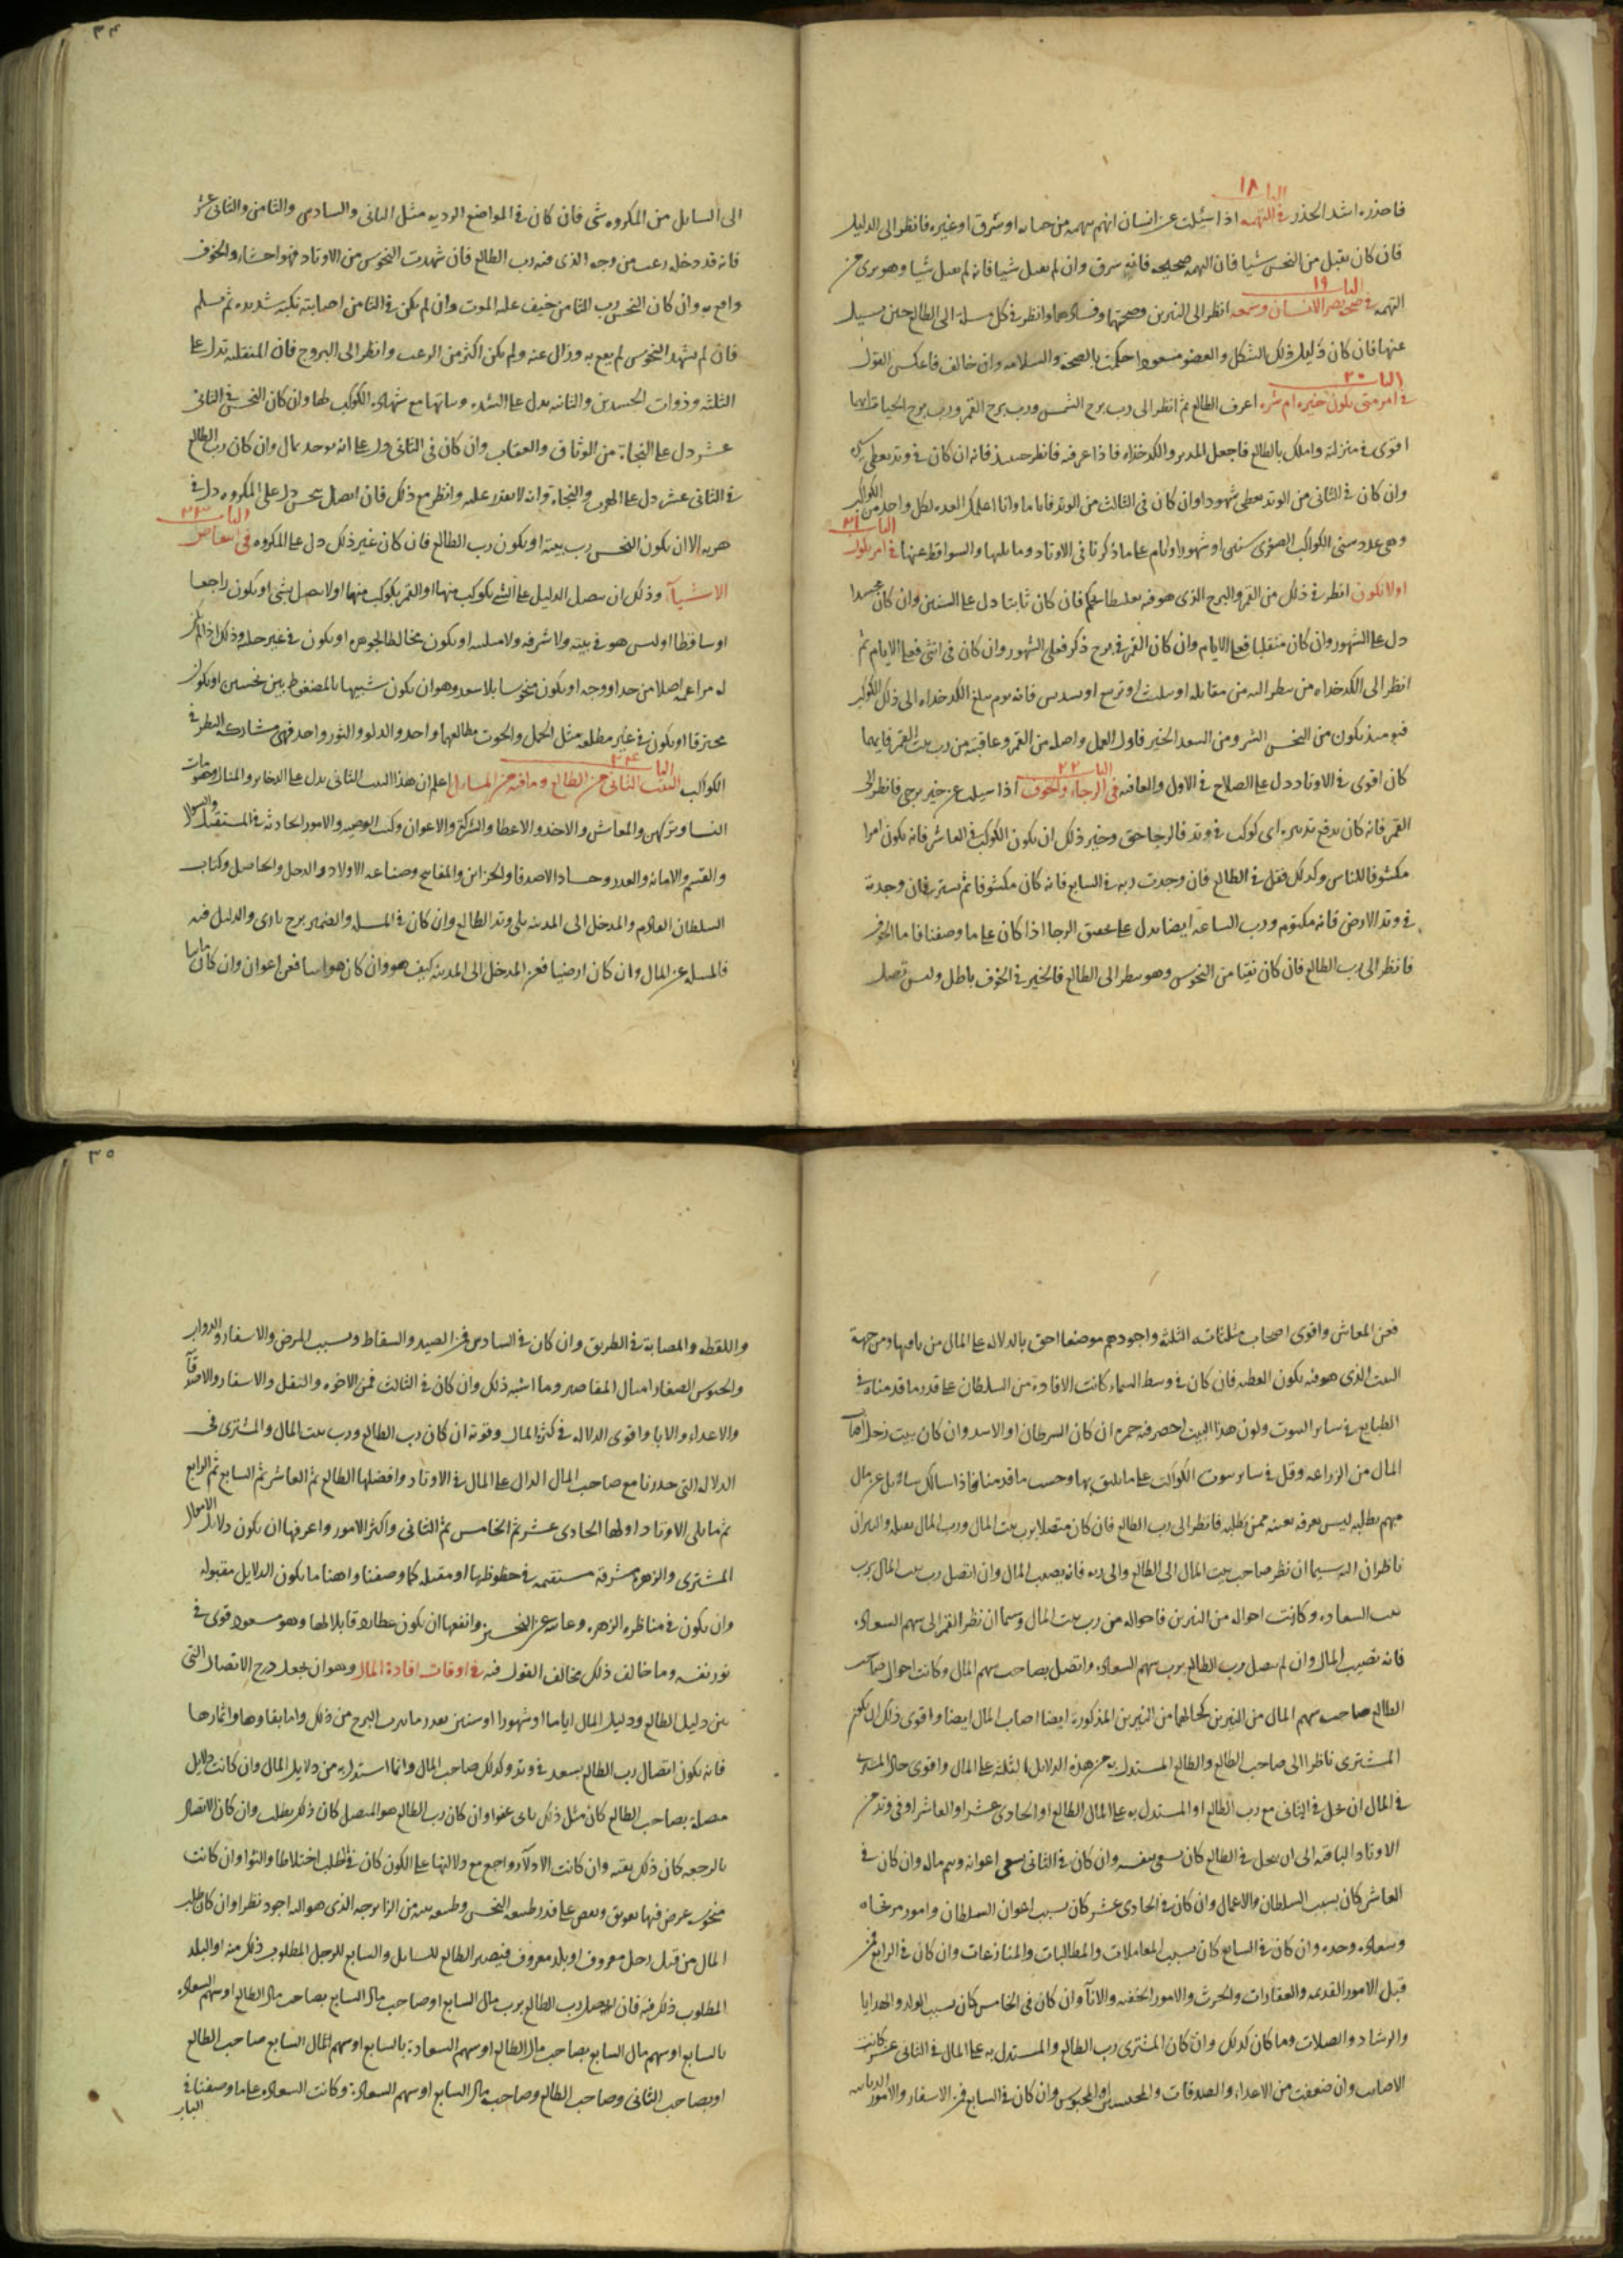 الباب ١٨
فاحذره اشد الحذر في التهمه اذا سئلت عن انسان اتهم بتهمه من خيانه او سرق او غيره فانظر الى الدليل
فان كان يقبل من النحس شيا فان التهمه صحيحه فانه سرق وان لم يقبل شيا فانه لم يعمل شيا وهو بري من
الباب ١٩
التهمه في صحه بصر الانسان وسمعه انظر الى النيرين وصحتهما وفسادهما وانظر في كل مسله الى الطالع حين تسيل
عنها فان كان دليل ذلك الشكل والعضو مسعودا حكمت بالصحه والسلامه وان خالف فاعكس القول
الباب ٢٠
في امر متى يكون خيره ام شره اعرف الطالع ثم انظر الى رب برج الشمس ورب برج القمر ورب برج الحياة ايهما
اقوى في منزلته واملك بالطالع فاجعل المدبر والكدخداه فاذا عرفته فانظر حينيذ فانه ان كان في وتد يعطي
وان كان في الثاني من الوتد يعطي شهودا وان كان في الثالث من الوتد فاياما وانا اعلمك العدد لكل واحد من الكواكب
وهي عدد سني الكواكب الصغرى سنين او شهورا او ايام على ما ذكرنا في الاوتاد وما يليها والسواقط عنها في امر يكون
الباب ٢١
او لا يكون انظر في ذلك من القمر والبرج الذي هو فيه فان كان ثابتا دل على السنين وان كان مجسدا
دل على الشهور وان كان منقلبا فعلى الايام وان كان القمر في برج ذكر فعلى الشهور وان كان في انثى فعلى الايام ثم
انظر الى الكدخداه من ينظر اليه من مقابله او تثليث او تربيع او تسديس فانه يوم يبلغ الكدخداه الى ذلك الكوكب
فيوميذ يكون من النحس الشر ومن السعد الخير فاول العمل واصله من القمر وعاقبته من رب بيت القمر فايهما
الباب ٢٢
كان اقوى في الاوتاد دل على الصلاح في الاول والعاقبه في الرجاء والخوف اذا سيلت عن خير يرجى فانظر الى
القمر فانه كان يدفع تدبيره اي كوكب في وتد فالرجا حق وخير ذلك ان يكون الكوكب في العاشر فانه يكون امرا
مكشوفا للناس وكذلك فقل في الطالع فان وجدت ربه في السابع فانه كان مكشوفا ثم يستر فان وجدته
في وتد الارض فانه مكتوم ورب الساعه ايضا يدل على تحقيق الرجا اذا كان على ما وصفنا فاما الخوف
فانظر الى رب الطالع فان كان نقيا من النحوس وهو ينظر الى الطالع فالخير في الخوف باطل وليس تصل
٣٤
الى السايل من المكروه شي فان كان في المواضع الرديه مثل الثاني والسادس والثامن والثاني عشر
فانه قد دخله رعب من وجه الذي فيه رب الطالع فان شهدت النحوس من الاوتاد فهو احساره والخوف
واقع به وان كان النحس رب الثامن خيف عليه الموت وان لم يكن في الثامن اصابته نكبه شديده ثم تسلم
فان لم تشهد النحوس لم يقع به وزال عنه ولم يكن اكثر من الرعب وانظر الى البروج فان المنقلبه تدل على
الثلثه وذوات الجسدين والثابته يدل على الشده وثباتها مع شهاده الكواكب لها وان كان النحس في الثاني
عشر دل على النجاة من الوثاق والعقاب وان كان في الثاني دل على انه يوخذ بمال وان كان رب الطالع
في الثاني عشر دل على الهرب والنجاه وانه لا يقدر عليه وانظر مع ذلك فان اتصل بنحس دل على المكروه دل في
الباب ٢٣
هربه الا ان يكون النحس رب بيته او يكون رب الطالع فان كان غير ذلك دل على المكروه في انتقاض
الاشيآ وذلك ان يتصل الدليل على الشي بكوكب منها او القمر بكوكب منها او لا يتصل بشي او يكون راجعا
او ساقطا او ليس هو في بيته ولا شرفه ولا مثلثته او يكون مخالطا لجوهره او يكون في غير حله وذلك اذا لم يكن
له مزاعمه اصلا من حد او وجه او يكون منحوسا بلا سعد وهو ان يكون شبيها بالمضغوط بين نحسين او يكون
محترقا او يكون في غير مطلعه مثل الحمل والحوت مطالعهما واحد والدلو والثور واحد فهي مشاركه النظر في
الباب ٢٤
الكواكب البيت الثاني من الطالع وما فيه من المسايل اعلم ان هذا البيت الثاني يدل على الذخاير والمنال ومهات
النسا وتزكيهن والمعاش والاخذ والاعطا والشركة والاعوان وكتب الوصيه والامور الحادثه في المستقبل والسوال
والقسم والامانه والعدد وحساد الاصدقا والخزاين والمفاتيح وصناعه الاولاد والدخل والحاصل وكتاب
السلطان القادم والمدخل الى المدينه يلي وتد الطالع وان كان في المسله والضمير برج ناري والدليل فيه
فالمسله عن المال وان كان ارضيا فعن المدخل الى المدينه كيف هو وان كان هوايا فعن اعوان وان كان مايا
فعن المعاش واقوى اصحاب مثلثاته الثلثه واجودهم موضعا احق بالدلاله على المال من باقيها ومن جهة
البيت الذي هو فيه يكون العطيه فان كان في وسط السماء كانت الافادة من السلطان على قدر ما قدمناه في
الطبايع في ساير البيوت ولون هذا البيت اخضر فيه حمره ان كان السرطان او الاسد وان كان بيت زحل اصاب
المال من الزراعه وقل في ساير بيوت الكواكب على ما يليق بها وحسب ما قدمنا فاذا سالك سايل عن مال
مبهم يطلبه ليس يعرفه بعينه ممن يطلبه فانظر الى رب الطالع فان كان متصلا برب بيت المال ورب المال يقبله والنيران
ناظران اليه سيما ان نظر صاحب بيت المال الى الطالع والى ربه فانه يصيب المال وان اتصل رب بيت المال برب
بيت السعاده وكانت احواله من النيرين فاحواله من رب بيت المال وسيما ان نظر القمر الى سهم السعاده
فانه تصيب المال وان لم يتصل رب الطالع برب سهم السعاده واتصل بصاحب سهم المال وكانت احوال صاحب
الطالع صاحب سهم المال من النيرين كحالهما من النيرين المذكورة ايضا اصاب المال ايضا واقوى ذلك ان يكون
المشتري ناظرا الى صاحب الطالع والطالع المستدل به من هذه الدلايل الثلثه على المال واقوى حال المشتري
في المال ان يحل في الثاني مع رب الطالع او المستدل به على المال الطالع او الحادي عشر او العاشر او في وتد من
الاوتاد الباقيه الى ان يحل في الطالع كان يسعى بنفسه وان كان في الثاني يسعى اعوانه وبهم ماله وان كان في
العاشر كان بسبب السلطان والاعمال وان كان في الحادي عشر كان بسبب اعوان السلطان وامور مرتجاه
وسعاده وحده وان كان في السابع كان بسبب المعاملات والمطالبات والمنازعات وان كان في الرابع فمن
قبل الامور القديمه والعقارات والحرث والامور الخفيه والابآ وان كان في الخامس كان بسبب الولد والهدايا
والرشاد والصلات وما كان كذلك وان كان المشتري رب الطالع والمستدل به على المال في الثاني عشر كانت
الاصابه وان ضعفت من الاعداء والصدقات والمحبسين او المحبوس وان كان في السابع فمن الاسفار والامور الدينيه
٣٥
واللقطه والمصابة في الطريق وان كان في السادس فمن الصيد والسقاط وبسبب المرض والاسفار والدواب
والحبوس الصغار امثال المقاصير وما اشبه ذلك وان كان في الثالث فمن الاخوه والنقل والاسفار والاصدقآ
والاعداء والابا واقوى الدلاله في كثرة المال وقوته ان كان رب الطالع ورب بيت المال والمشتري في
الدلاله التي حددنا مع صاحب المال الدال على المال في الاوتاد وافضلها الطالع ثم العاشر ثم السابع ثم الرابع
ثم ما يلي الاوتاد اولها الحادي عشر ثم الخامس ثم الثاني واكثر الامور واعرفها ان يكون دلايل الاموال
المشتري والزهره مشرقة مستقيمه في حظوظها او مقبله كما وصفنا واهنا ما يكون الدلايل مقبوله
وان يكون في مناظره الزهره وعاريه عن النحسين وانفعها ان يكون عطارد قابلا لها وهو مسعود قوي في
نور نفسه وما خالف ذلك مخالف القول فيه في اوقات افادة المال وهو ان يجعل درج الاتصال التي
بين دليل الطالع ودليل المال اياما او شهورا او سنين بقدر مراتب البرج من ذلك واما بقاوها واثمارها
فانه يكون اتصال رب الطالع بسعد في وتد وكذلك صاحب المال وانما استدل به من دلايل المال وان كانت دلايل
متصله بصاحب الطالع كان مثل ذلك ياتي عفوا وان كان رب الطالع هو المتصل كان ذلك بطلب وان كان الاتصال
بالرجعه كان ذلك بغته وان كانت الادلآء رواجع مع دلالتها على الكون كان في الطلب اختلاطا والتوا وان كانت
منحوسه عرض فيها تعويق وبعض على قدر طبيعه النحس وطبيعه بيته من الزايرجه الذي هو اليه اجود نظرا وان كان طلب
المال من قبل رجل معروف او بلد معروف فيصير الطالع للسايل والسابع للرجل المطلوب ذلك منه او البلد
المطلوب ذلك فيه فان اتصل رب الطالع برب مال السابع او صاحب مال السابع بصاحب مال الطالع او سهم السعاده
بالسابع او سهم مال السابع بصاحب مال الطالع او سهم السعادة بالسابع او سهم المال السابع صاحب الطالع
او بصاحب الثاني وصاحب الطالع وصاحب مال السابع او سهم السعاده وكانت السعاده على ما وصفنا في
الباب